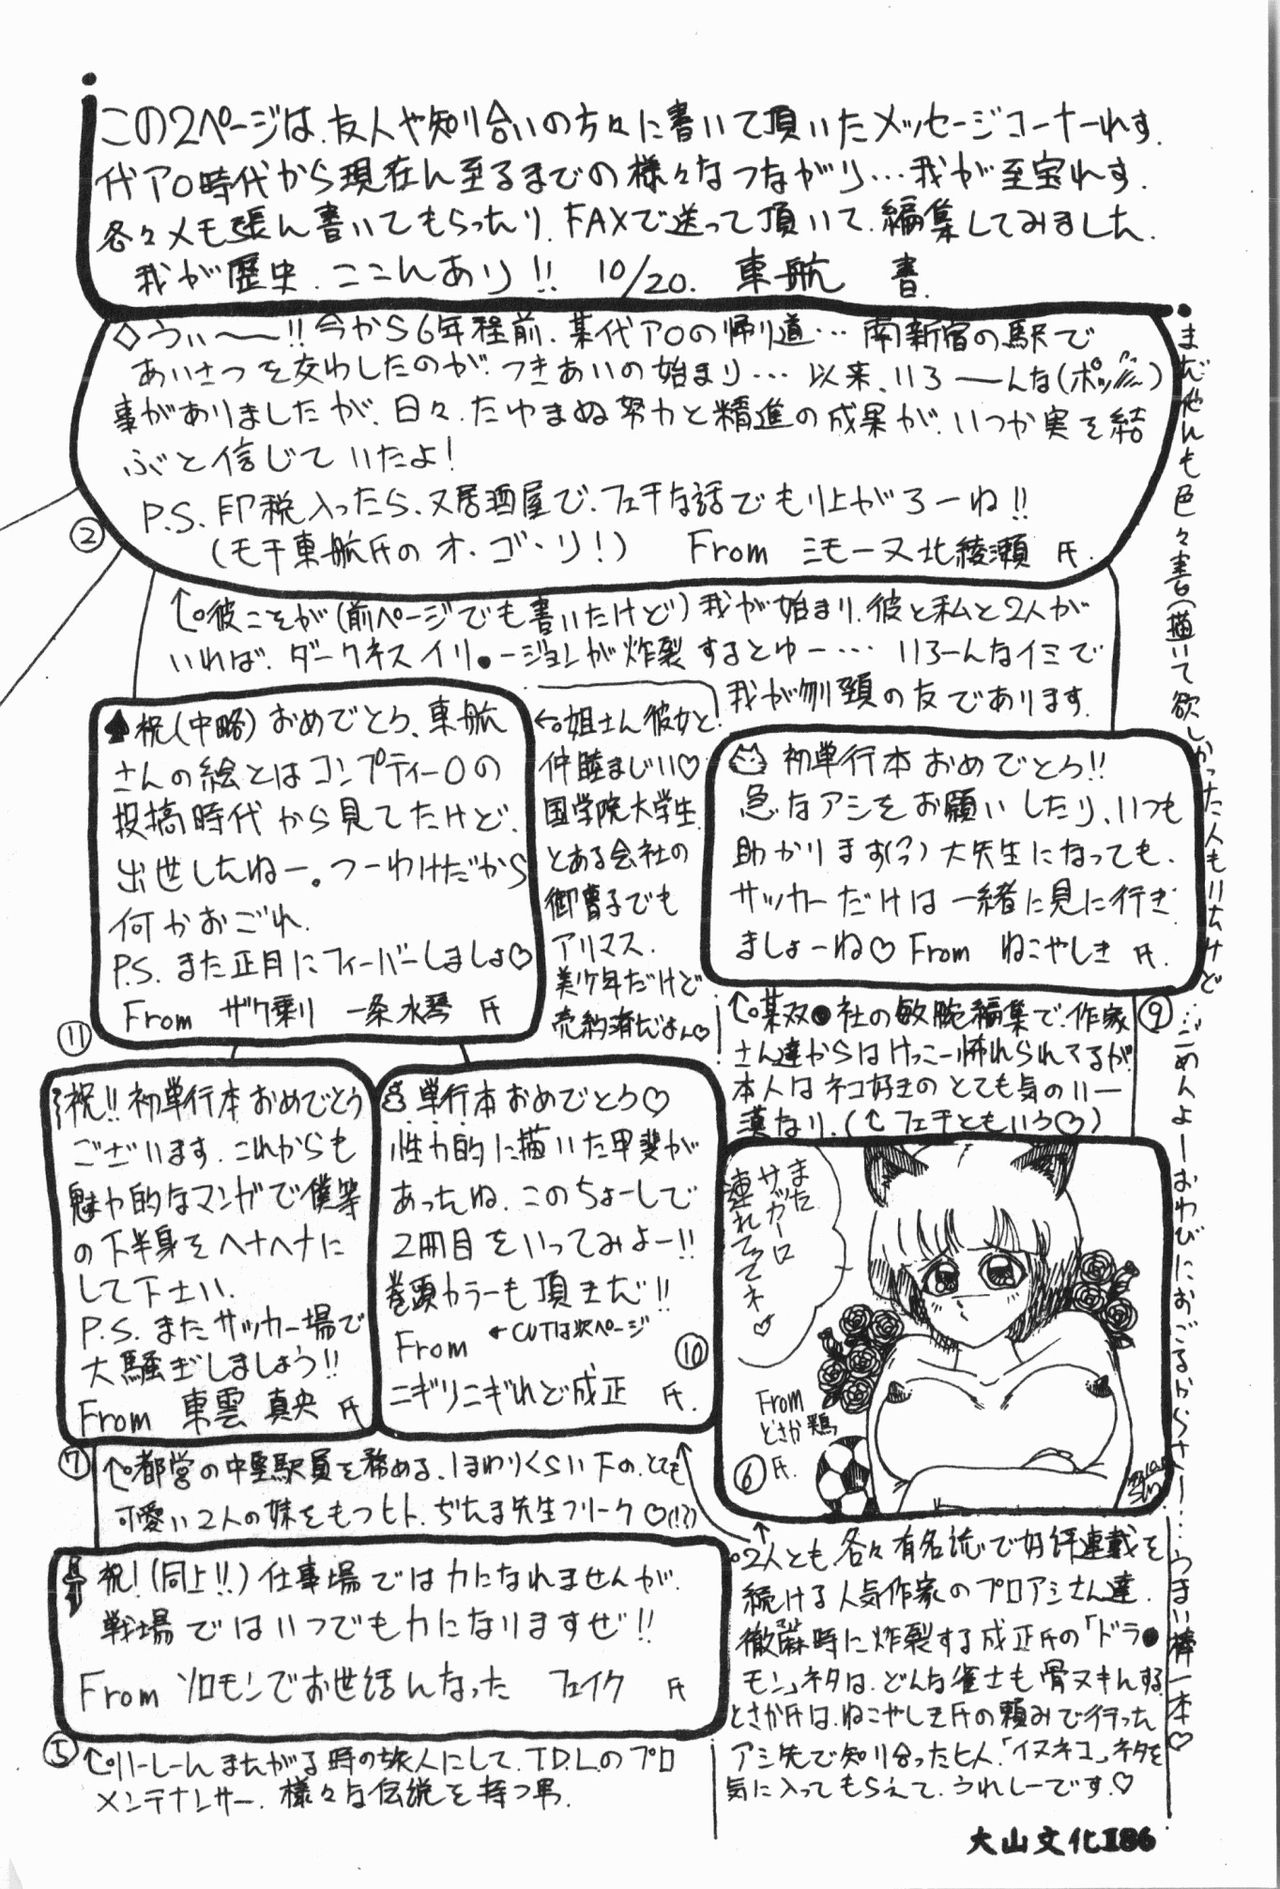 この2ページは、友人や知り合いの方々に書いて頂いたメッセージコーナーれす。
代アO時代から現在ん至るまでの様々なつながり…我が至宝れす。
各々メモ張ん書いてもらったり、FAXで送って頂いて、編集してみました。
我が歴史、ここんあり!! 10/20. 東航 書
◇うぃ〜!!今から6年程前、某代アOの帰り道…南新宿の駅で
あいさつを交わしたのが、つきあいの始まり…以来、いろーんな(ポッ)
事がありましたが、日々、たゆまぬ努力と精進の成果が、いつか実を結
ぶと信じていたよ!
P.S. 印税入ったら、又居酒屋で、フェチな話でもり上がろーね!!
(モチ東航氏のオ・ゴ・リ!) From ミモーヌ北綾瀬 氏.
②
↑°彼こそが(前ページでも書いたけど)我が始まり、彼と私と2人が
いれば、ダークネスイリ●ージョンが炸裂するとゆー…いろーんなイミで
我が刎頚の友であります。
♠祝(中略)おめでとう、東航
さんの絵とはコンプティーOの
投稿時代から見てたけど、
出世したねー。つーわけだから
何かおごれ
P.S. また正月にフィーバーしましょ♡
From ザク乗り 一条水琴 氏
⑪
←°姐さん彼女と
仲睦まじい♡
国学院大学生
とある会社の
御曹子でも
アリマス.
美少年だけど
売約済だよん♡
初単行本おめでとう!!
急なアシをお願いしたり、いつも
助かります(?)大先生になっても、
サッカーだけは一緒に見に行き
ましょーね♡ From ねこやしき 氏.
⑨
↑°某双●社の敏腕編集で、作家
さん達からはけっこー怖れられてるが
本人はネコ好きのとても気のいー
漢なり.(↑フェチともいう♡)
祝!!初単行本おめでとう
ございます.これからも
魅力的なマンガで僕等
の下半身をヘナヘナに
して下さい.
P.S. またサッカー場で
大騒ぎしましょう!!
From 東雲 真央 氏
⑦
単行本おめでとう♡
性力的に描いた甲斐が
あったね.このちょーしで
2冊目をいってみよー!!
巻頭カラーも頂きだ!!
From ←CUTは次ページ
ニギリニギれど成正 氏.
⑩
また
サッカーに
連れてってネ♡
From
とさか鶏
氏.
⑥
↑°都営の中堅駅員を務める、1まわりくらい下の、とても
可愛い2人の妹をもつヒト、ぢたま先生フリーク♡(!?)
祝!(同上!!)仕事場では力になれませんが、
戦場ではいつでも力になりますぜ!!
From ソロモンでお世話んなった フェイク 氏
⑤
↑°リーしーんまたがる時の旅人にして、T.D.L.のプロ
メンテナンサー.様々な伝説を持つ男.
°2人とも各々有名誌で好評連載を
続ける人気作家のプロアシさん達.
徹麻時に炸裂する成正氏の「ドラ●
モン」ネタは、どんな雀士も骨ヌキんする
とさか氏は、ねこやしき氏の頼みで行った
アシ先で知り合ったヒト.「イヌネコ」ネタを
気に入ってもらえて、うれしーです.♡
まだ他んも色々書(描)いて欲しかった人もいたけど…ごめんよーおわびにおごるからさー…うまい棒一本♡
大山文化Ⅱ86